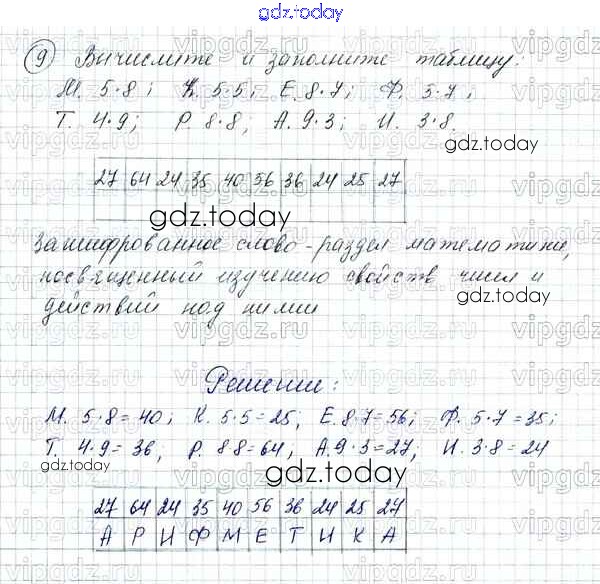 gdz.today
9 Вычислите и заполните таблицу:
М. 5·8; К. 5·5; Е. 8·7; Ф. 5·7;
Т. 4·9; Р. 8·8; А. 9·3; И. 3·8.
gdz.today
27 64 24 35 40 56 36 24 25 27
gdz.today
Зашифрованное слово - раздел математики,
посвященный изучению свойств чисел и
gdz.today
действий под ними
Решение:
М. 5·8=40; К. 5·5=25, Е. 8·7=56; Ф. 5·7=35;
Т. 4·9=36, Р. 8·8=64, А. 9·3=27, И. 3·8=24
gdz.today
27 64 24 35 40 56 36 24 25 27
А Р И Ф М Е Т И К А